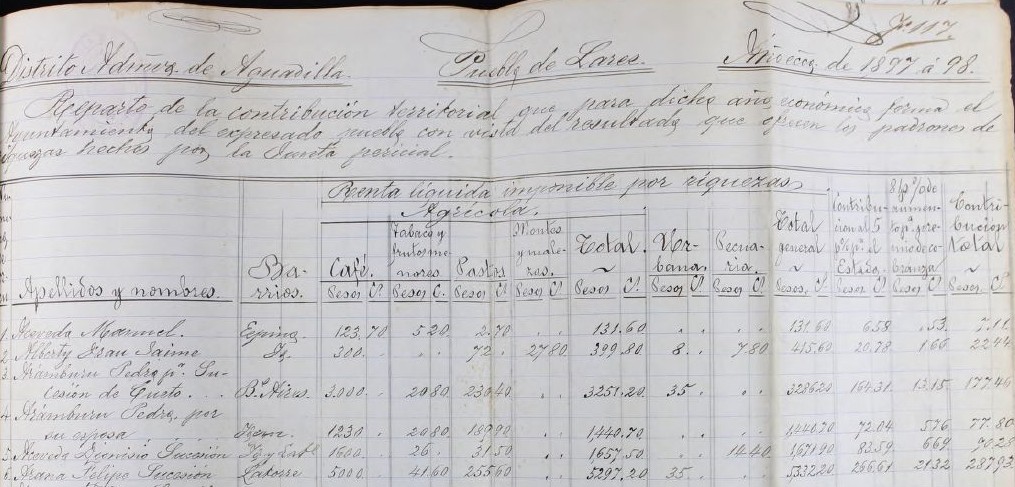 Nº 117.
Distrito Admvo. de Aguadilla. Pueblo de Lares. Año ecoo. de 1897 á 98.
Reparto de la contribución territorial que para dicho año económico forma el
Ayuntamiento del expresado pueblo con vista del resultado que ofrecen los padrones de
riquezas hechos por la Junta pericial.
Renta líquida imponible por riquezas
Agrícola.
Apellidos y nombres. Barrios. Café. Tabaco y frutos menores. Pastos Montes y malezas. Total. Urbana. Pecuaria. Total general Contribucional 5 p% pª el Estado. 8 p% de aumento pª premio de cobranza Contribución total
Pesos Cs. Pesos C. Pesos Cs. Pesos C. Pesos Cs. Pesos Cs. Pesos Cs. Pesos Cs. Pesos Cs. Pesos Cs. Pesos Cs.
1. Acevedo Manuel. Espino 123.70 5.20 2.70 . . 131.60 . . . . 131.60 6.58 .53 7.11
2. Alberty Isau Jaime Id. 300. . . 72. 27.80 399.80 8. . 7.80 415.60 20.78 1.66 22.44
3. Aramburu Pedro pr. Su-
cesión de Cueto. . . Bs. Aires. 3.000. . 20.80 230.40 . . 3251.20 35. . . 3286.20 164.31 13.15 177.46
4. Aramburu Pedro por
su esposa . . Idem. 1230. 20.80 189.90 . . 1,440.70 . . . . 1,440.70 72.04 5.76 77.80
5. Acevedo Dionisio Sucesión Id y Labl 1600. 26. 31.50 . . 1657.50 . . 14.40 1,671.90 83.59 6.69 90.28
6. Arana Felipe Sucesión Latorre 5000 41.60 255.60 . . 5297.20 35. . . 5332.20 266.61 21.32 287.93